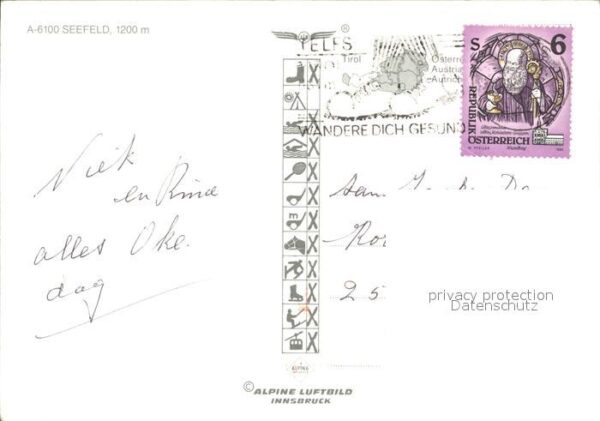 A-6100 SEEFELD, 1200 m
TELFS
Tirol
Österre
Austria
Autric
WANDERE DICH GESUND
S 6
REPUBLIK
ÖSTERREICH
Niek
en Rina
alles Oke.
dag
m
25
privacy protection
Datenschutz
© ALPINE LUFTBILD
INNSBRUCK